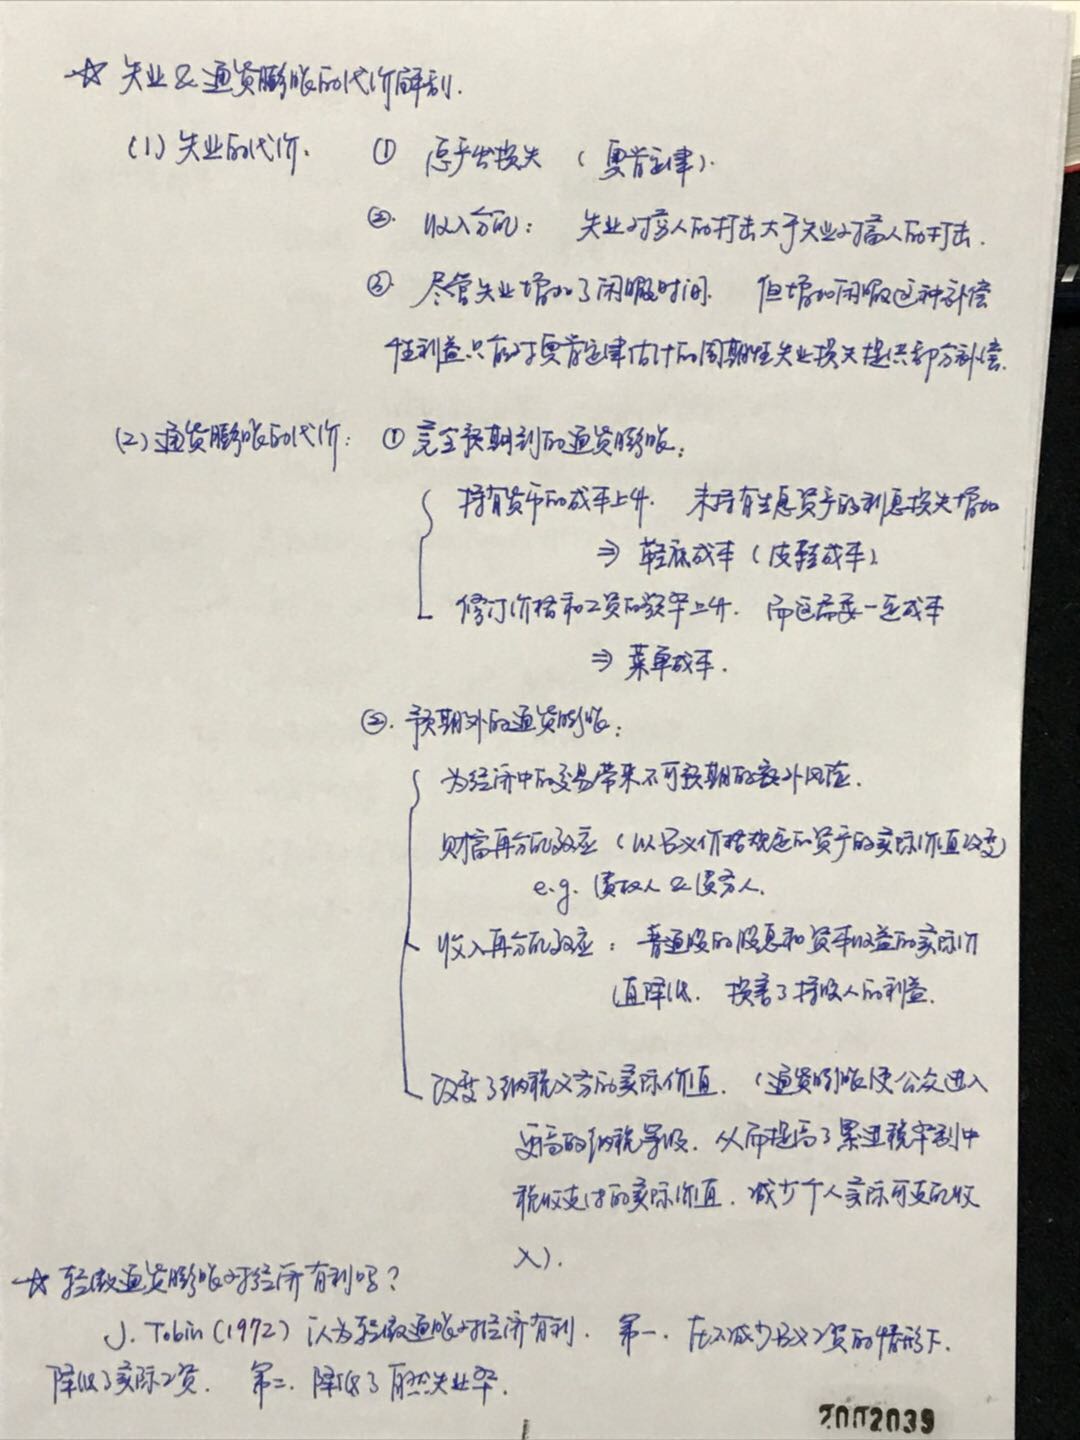 ☆ 失业&通货膨胀的代价解剖.
(1) 失业的代价. ① 总产出损失 (奥肯定律).
②. 收入分配: 失业对穷人的打击大于失业对富人的打击.
③. 尽管失业增加了闲暇时间. 但增加闲暇这种补偿
性利益只能对奥肯定律估计的周期性失业损失提供部分补偿.
(2) 通货膨胀的代价: ① 完全预期到的通货膨胀:
持有货币的成本上升. 未持有生息资产的利息损失增加
⇒ 鞋底成本 (皮鞋成本)
修订价格和工资的频率上升. 而这需要一定成本
⇒ 菜单成本.
②. 预期外的通货膨胀:
为经济中的交易带来不可预期的额外风险.
财富再分配效应 (以名义价格规定的资产的实际价值改变)
e.g. 债权人 & 债务人.
收入再分配效应: 普通股的股息和资本收益的实际价
值降低. 损害了持股人的利益.
改变了纳税义务的实际价值. (通货膨胀使公众进入
更高的纳税等级. 从而提高了累进税率制中
税收支付的实际价值. 减少个人实际可支配收
入).
☆ 轻微通货膨胀对经济有利吗?
J. Tobin (1972) 认为轻微通胀对经济有利. 第一. 在不减少名义工资的情形下.
降低了实际工资. 第二. 降低了自然失业率.
2002039